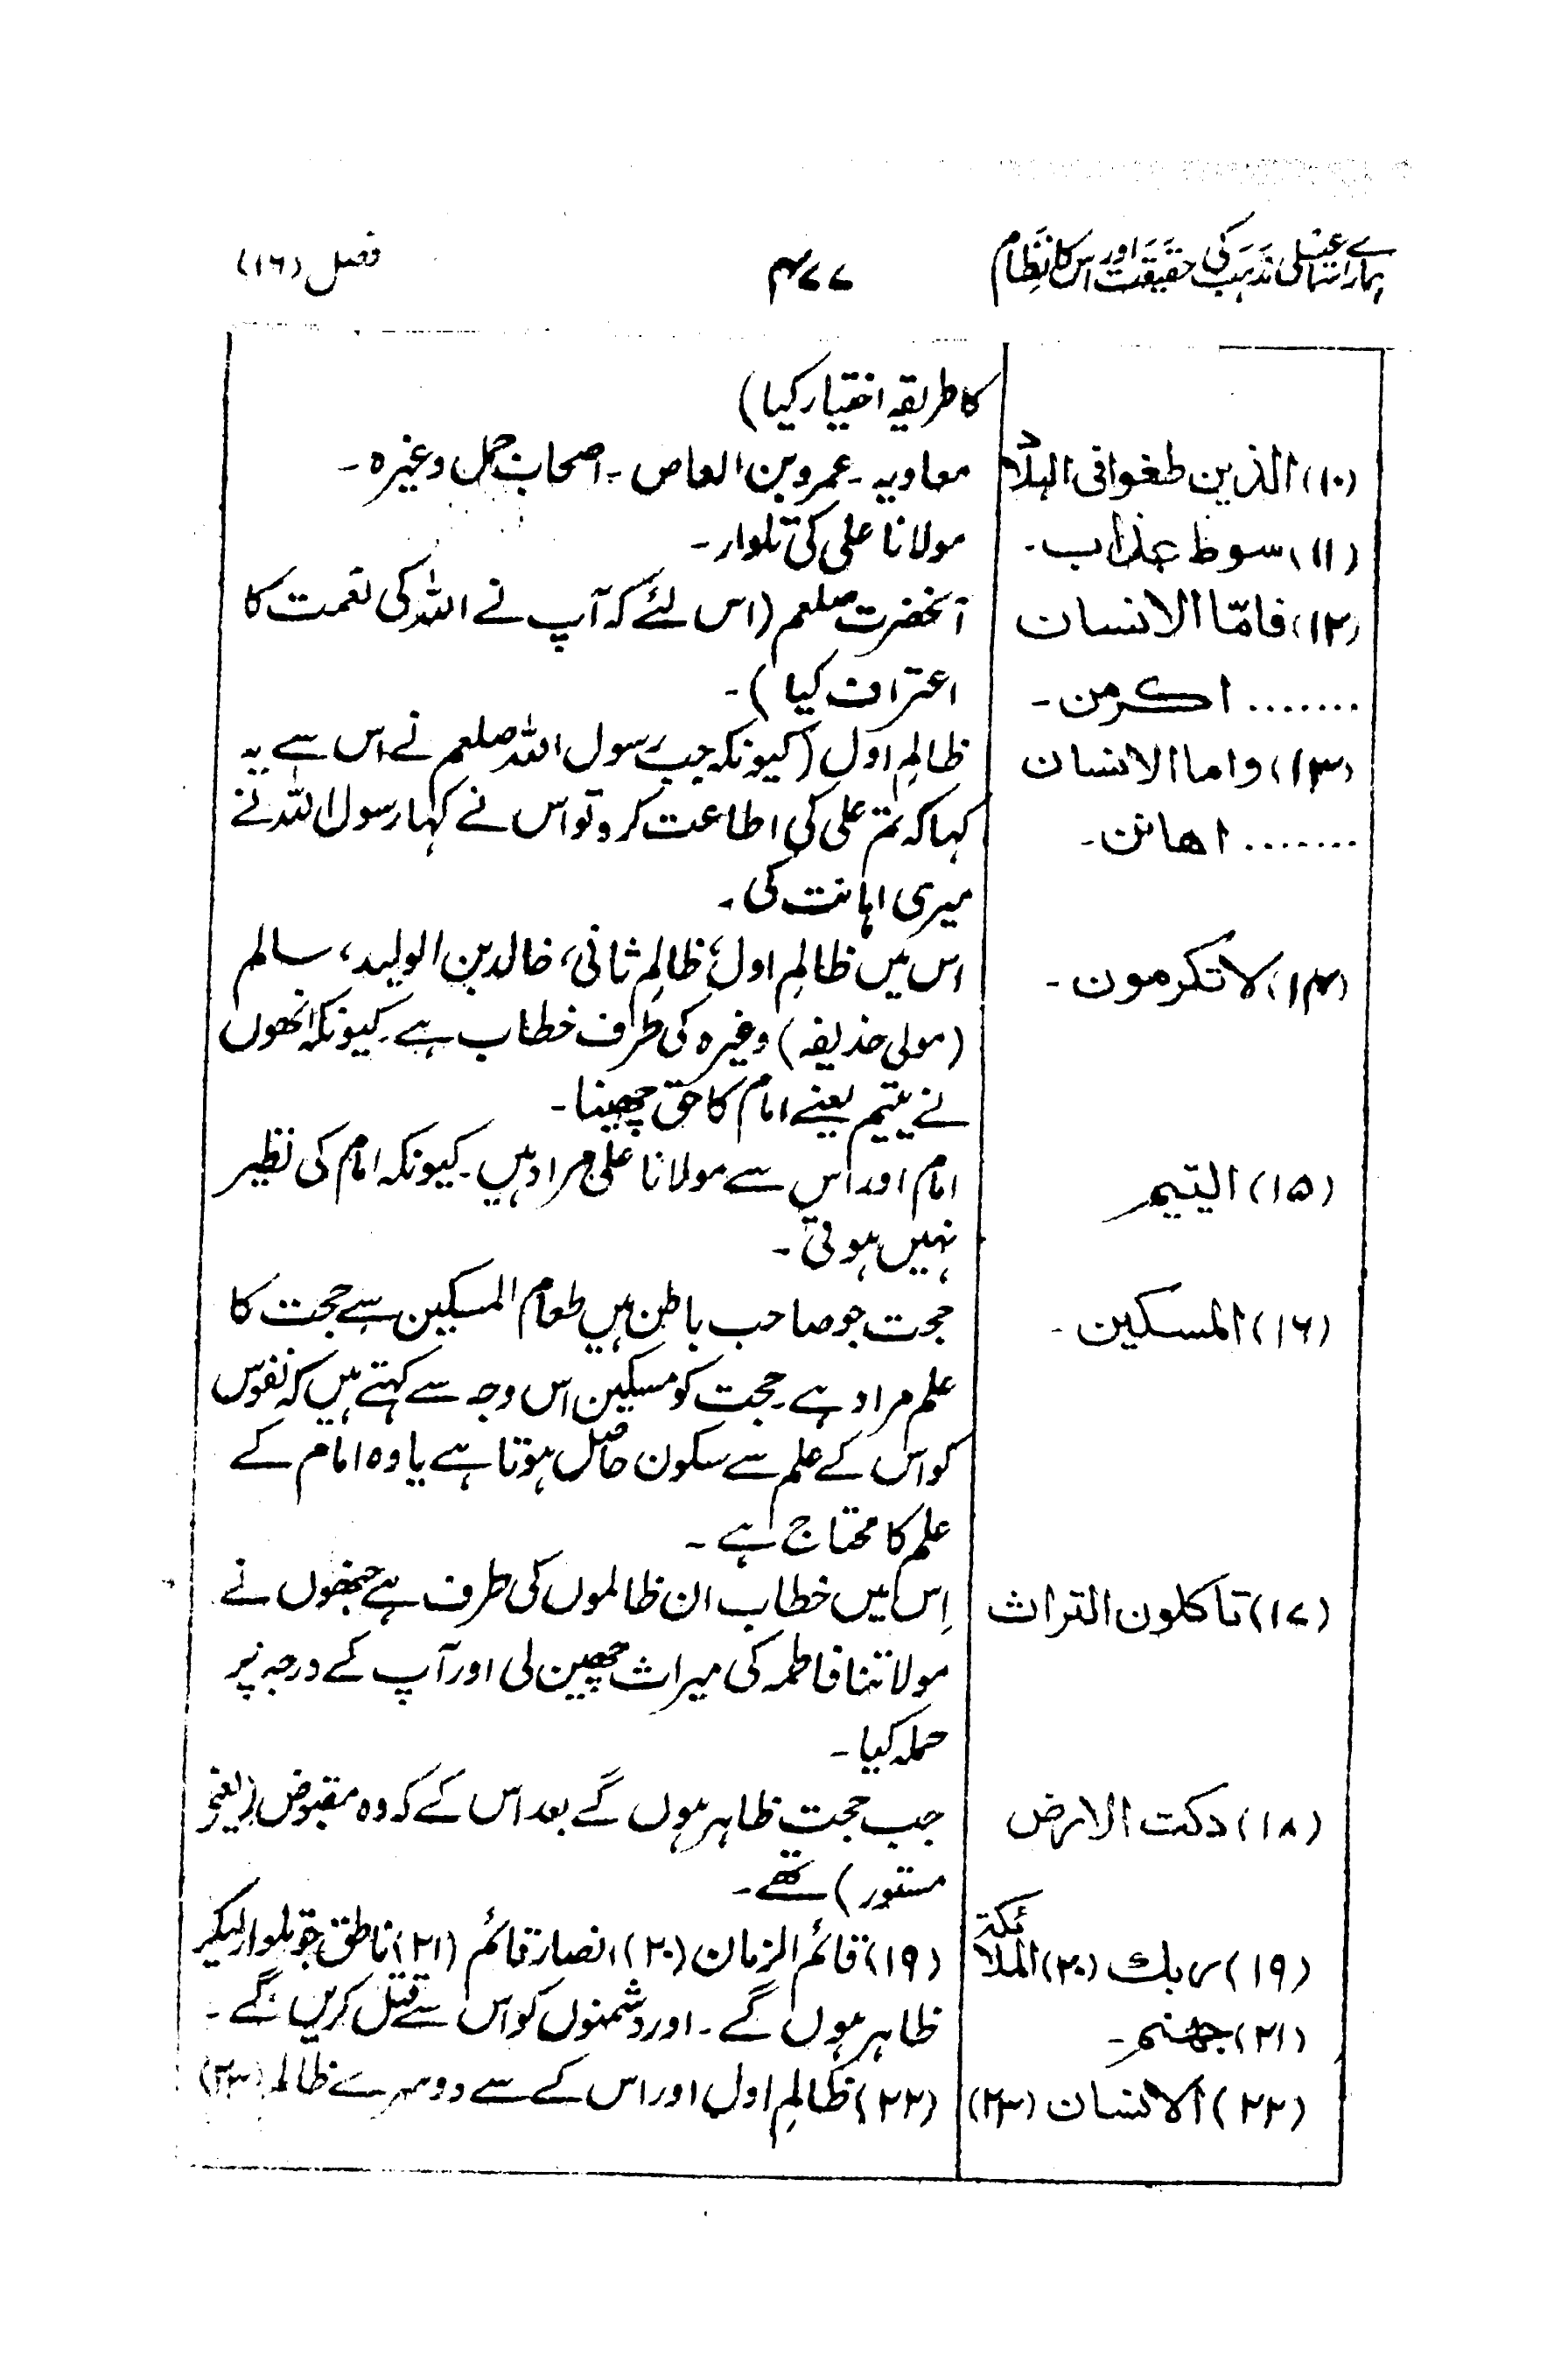 ہمارے اسماعیلی مذہب کی حقیقت اور اس کا نظام ۴۷۷ فصل (۱۶)
کا طریقہ اختیار کیا)
(۱۰) الذین طغوا فی البلاد معاویہ ۔ عمرو بن العاص ۔ اصحاب جمل وغیرہ ۔
(۱۱) سوط عذاب ۔ مولانا علی کی تلوار ۔
(۱۲) فامّا الانسان آنحضرت صلعم (اس لئے کہ آپ نے اللہ کی نعمت کا
....... اکرمن ۔ اعتراف کیا) ۔
(۱۳) واما الانسان ظالمِ اول (کیونکہ جب رسول اللہ صلعم نے اس سے یہ
....... اھانن ۔ کہا کہ تم علی کی اطاعت کرو تو اس نے کہا رسول اللہ نے
میری اہانت کی ۔
(۱۴) لا تکرمون ۔ اس میں ظالمِ اول، ظالمِ ثانی، خالد بن الولید، سالم
(مولی حذیفہ) وغیرہ کی طرف خطاب ہے ۔ کیونکہ انھوں
نے یتیم یعنے امام کا حق چھینا ۔
(۱۵) الیتیم امام اور اس سے مولانا علی مراد ہیں ۔ کیونکہ امام کی نظیر
نہیں ہوتی ۔
(۱۶) المسکین ۔ حجت جو صاحب باطن ہیں طعام المسکین سے حجت کا
علم مراد ہے ۔ حجت کو مسکین اس وجہ سے کہتے ہیں کہ نفوس
کو اس کے علم سے سکون حاصل ہوتا ہے یا وہ امام کے
علم کا محتاج ہے ۔
(۱۷) تاکلون التراث اِس میں خطاب ان ظالموں کی طرف ہے جنھوں نے
مولاتنا فاطمہ کی میراث چھین لی اور آپ کے درجہ پر
حملہ کیا ۔
(۱۸) دکت الارض جب حجت ظاہر ہوں گے بعد اس کے کہ وہ مقبوض (یعنی
مستور) تھے ۔
(۱۹) ربك (۲۰) الملائکۃ (۱۹) قائم الزمان (۲۰) انصار قائم (۲۱) ناطق جو تلوار لیکر
(۲۱) جھنم ۔ ظاہر ہوں گے ۔ اور دشمنوں کو اس سے قتل کریں گے ۔
(۲۲) الانسان (۲۳) (۲۲) ظالمِ اول اور اس کے سے دوسرے ظالم (۲۳)